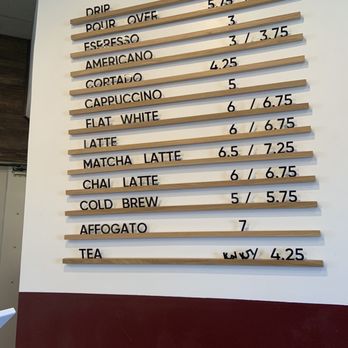 DRIP
POUR OVER 5.75
ESPRESSO 3
AMERICANO 3 / 3.75
CORTADO 4.25
CAPPUCCINO 5
FLAT WHITE 6 / 6.75
LATTE 6 / 6.75
MATCHA LATTE 6.5 / 7.25
CHAI LATTE 6 / 6.75
COLD BREW 5 / 5.75
AFFOGATO 7
TEA / 4.25